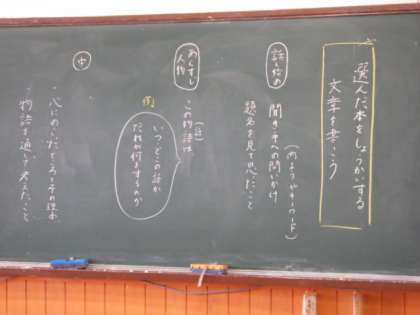 選んだ本をしょうかいする
文章を書こう
話し始め
(めあてやキーワード)
聞き手への問いかけ
題名を見て思ったこと
あらすじ
人物
(主)
この物語は
例
いつ、どこの話か
だれが何をするのか
中
・心にのこったところとその理由
・物語を通して考えたこと